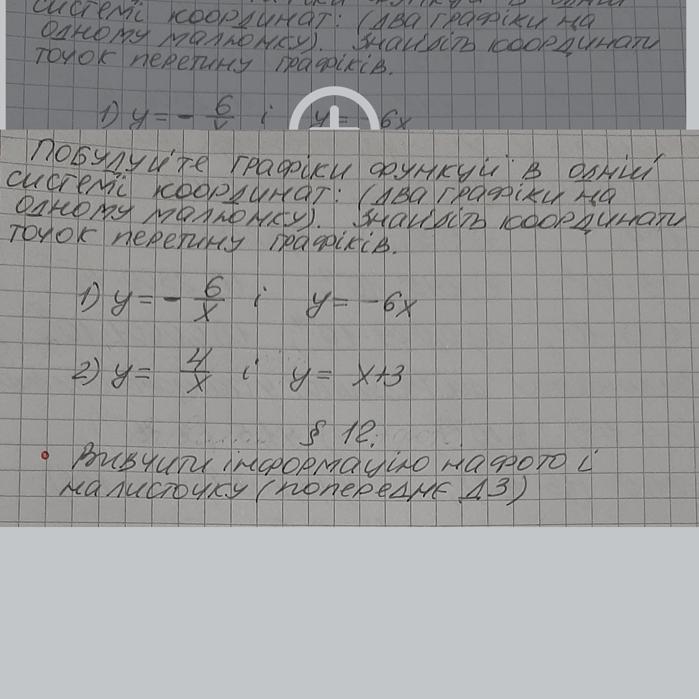 системі координат: (два графіки на
одному малюнку). Знайдіть координати
точок перетину графіків.
1) y = - 6/x і y = -6x
Побудуйте графіки функцій в одній
системі координат: (два графіки на
одному малюнку). Знайдіть координати
точок перетину графіків.
1) y = - 6/x і y = -6x
2) y = 4/x і y = x+3
§ 12.
• Вивчити інформацію на фото і
на листочку (попереднє ДЗ)